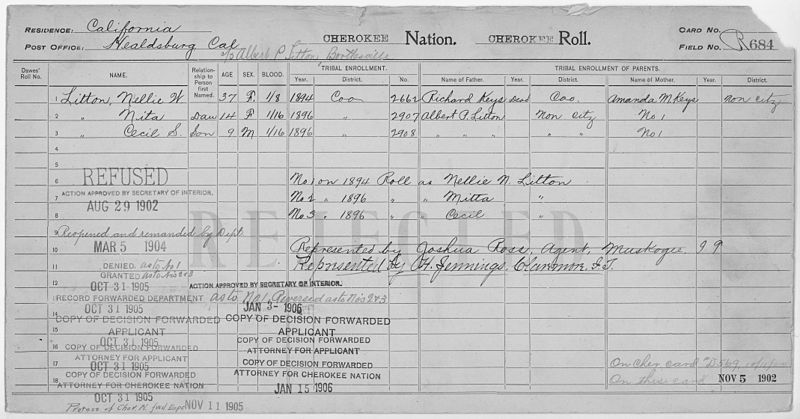 RESIDENCE: California
POST OFFICE: Healdsburg Cal
c/o Albert P. Litton Bartlesville
CHEROKEE Nation. CHEROKEE Roll.
CARD NO.
FIELD NO. R684
Dawes' Roll No. NAME. Relationship to Person first Named. AGE SEX. BLOOD. TRIBAL ENROLLMENT. Year. District. No. TRIBAL ENROLLMENT OF PARENTS. Name of Father. Year. District. Name of Mother. Year. District.
1 Litton, Nellie W 37 F. 1/8 1894 Coo 2662 Richard Keys Dead Coo. Amanda M Keys non citz
2 " Nita Dau 14 F. 1/16 1896 " 2907 Albert P. Litton non citz No 1
3 " Cecil S. Son 9 M 1/16 1896 " 2908 " " " " " No 1
4
5
6 REFUSED No 1 on 1894 Roll as Nellie N. Litton
7 ACTION APPROVED BY SECRETARY OF INTERIOR. No 2 " 1896 " " Mitta "
8 AUG 29 1902 No 3 " 1896 " " Cecil "
REJECTED
9 Reopened and remanded by Dept.
10 MAR 5 1904 Represented by Joshua Ross, Agent, Muskogee, I.T.
11 DENIED as to No 1 Represented by H. Jennings, Claremore, I.T.
GRANTED as to Nos 2 & 3
12 OCT 31 1905 ACTION APPROVED BY SECRETARY OF INTERIOR.
13 RECORD FORWARDED DEPARTMENT as to No 1. Reversed as to Nos 2 & 3
OCT 31 1905 JAN 3- 1906
14 COPY OF DECISION FORWARDED COPY OF DECISION FORWARDED
15 APPLICANT APPLICANT
OCT 31 1905 COPY OF DECISION FORWARDED
16 COPY OF DECISION FORWARDED ATTORNEY FOR APPLICANT
ATTORNEY FOR APPLICANT COPY OF DECISION FORWARDED
17 OCT 31 1905 ATTORNEY FOR CHEROKEE NATION On Cher card D569,
18 ATTORNEY FOR CHEROKEE NATION JAN 15 1906 On this card NOV 5 1902
OCT 31 1905
Protest of Cher. N. NOV 11 1905